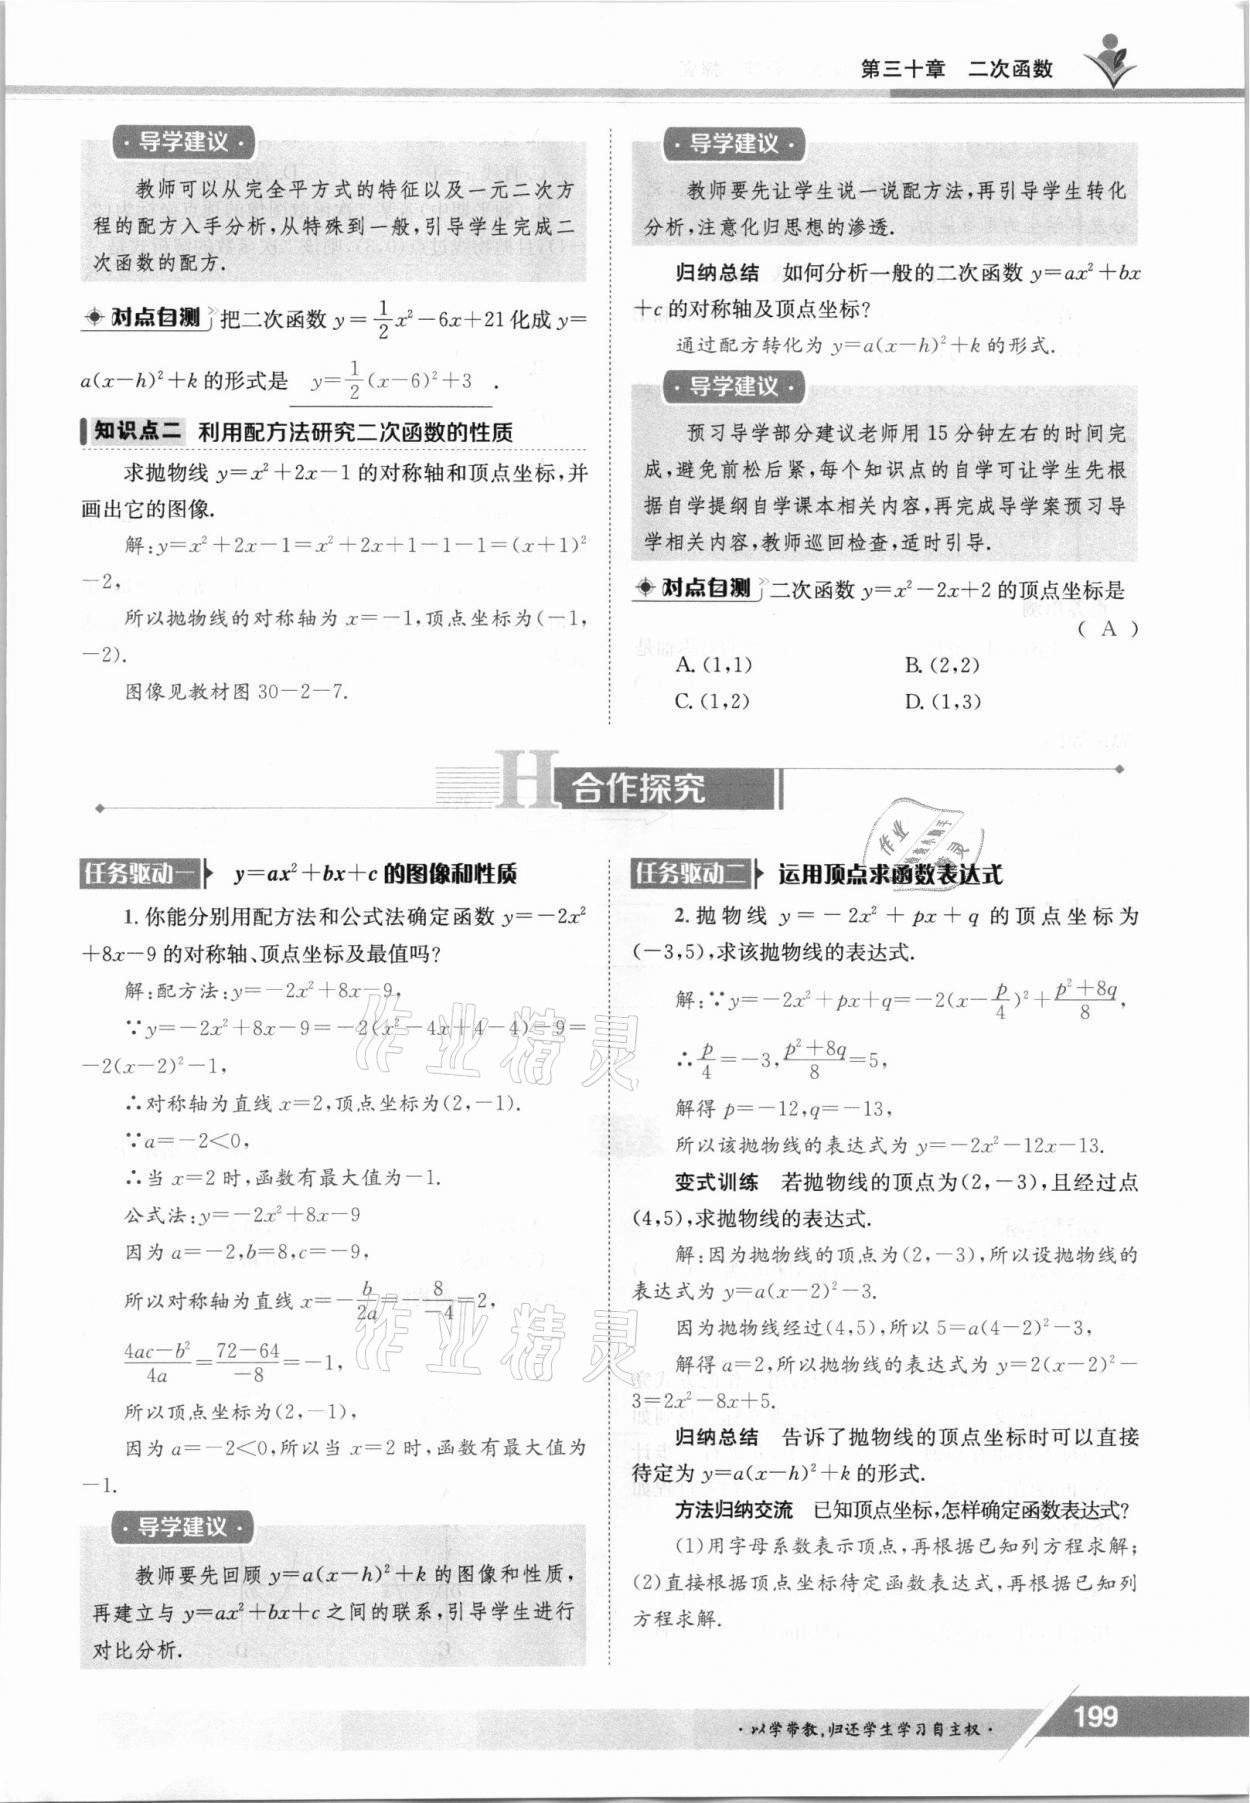 第三十章 二次函数
·导学建议·
教师可以从完全平方式的特征以及一元二次方
程的配方入手分析,从特殊到一般,引导学生完成二
次函数的配方.
对点自测 把二次函数 y=1/2x²-6x+21 化成 y=
a(x-h)²+k 的形式是 y=1/2(x-6)²+3 .
知识点二 利用配方法研究二次函数的性质
求抛物线 y=x²+2x-1 的对称轴和顶点坐标,并
画出它的图像.
解:y=x²+2x-1=x²+2x+1-1-1=(x+1)²
-2,
所以抛物线的对称轴为 x=-1,顶点坐标为(-1,
-2).
图像见教材图 30-2-7.
·导学建议·
教师要先让学生说一说配方法,再引导学生转化
分析,注意化归思想的渗透.
归纳总结 如何分析一般的二次函数 y=ax²+bx
+c 的对称轴及顶点坐标?
通过配方转化为 y=a(x-h)²+k 的形式.
·导学建议·
预习导学部分建议老师用 15 分钟左右的时间完
成,避免前松后紧,每个知识点的自学可让学生先根
据自学提纲自学课本相关内容,再完成导学案预习导
学相关内容,教师巡回检查,适时引导.
对点自测 二次函数 y=x²-2x+2 的顶点坐标是
( A )
A.(1,1) B.(2,2)
C.(1,2) D.(1,3)
H 合作探究
任务驱动一 y=ax²+bx+c 的图像和性质
1.你能分别用配方法和公式法确定函数 y=-2x²
+8x-9 的对称轴、顶点坐标及最值吗?
解:配方法:y=-2x²+8x-9,
∵y=-2x²+8x-9=-2(x²-4x+4-4)-9=
-2(x-2)²-1,
∴对称轴为直线 x=2,顶点坐标为(2,-1).
∵a=-2<0,
∴当 x=2 时,函数有最大值为-1.
公式法:y=-2x²+8x-9
因为 a=-2,b=8,c=-9,
所以对称轴为直线 x=-b/2a=-8/-4=2,
4ac-b²/4a=72-64/-8=-1,
所以顶点坐标为(2,-1),
因为 a=-2<0,所以当 x=2 时,函数有最大值为
-1.
·导学建议·
教师要先回顾 y=a(x-h)²+k 的图像和性质,
再建立与 y=ax²+bx+c 之间的联系,引导学生进行
对比分析.
任务驱动二 运用顶点求函数表达式
2.抛物线 y=-2x²+px+q 的顶点坐标为
(-3,5),求该抛物线的表达式.
解:∵y=-2x²+px+q=-2(x-p/4)²+p²+8q/8,
∴p/4=-3,p²+8q/8=5,
解得 p=-12,q=-13,
所以该抛物线的表达式为 y=-2x²-12x-13.
变式训练 若抛物线的顶点为(2,-3),且经过点
(4,5),求抛物线的表达式.
解:因为抛物线的顶点为(2,-3),所以设抛物线的
表达式为 y=a(x-2)²-3.
因为抛物线经过(4,5),所以 5=a(4-2)²-3,
解得 a=2,所以抛物线的表达式为 y=2(x-2)²-
3=2x²-8x+5.
归纳总结 告诉了抛物线的顶点坐标时可以直接
待定为 y=a(x-h)²+k 的形式.
方法归纳交流 已知顶点坐标,怎样确定函数表达式?
(1)用字母系数表示顶点,再根据已知列方程求解;
(2)直接根据顶点坐标待定函数表达式,再根据已知列
方程求解.
作业精灵
作业精灵
·以学带教,归还学生学习自主权·
199